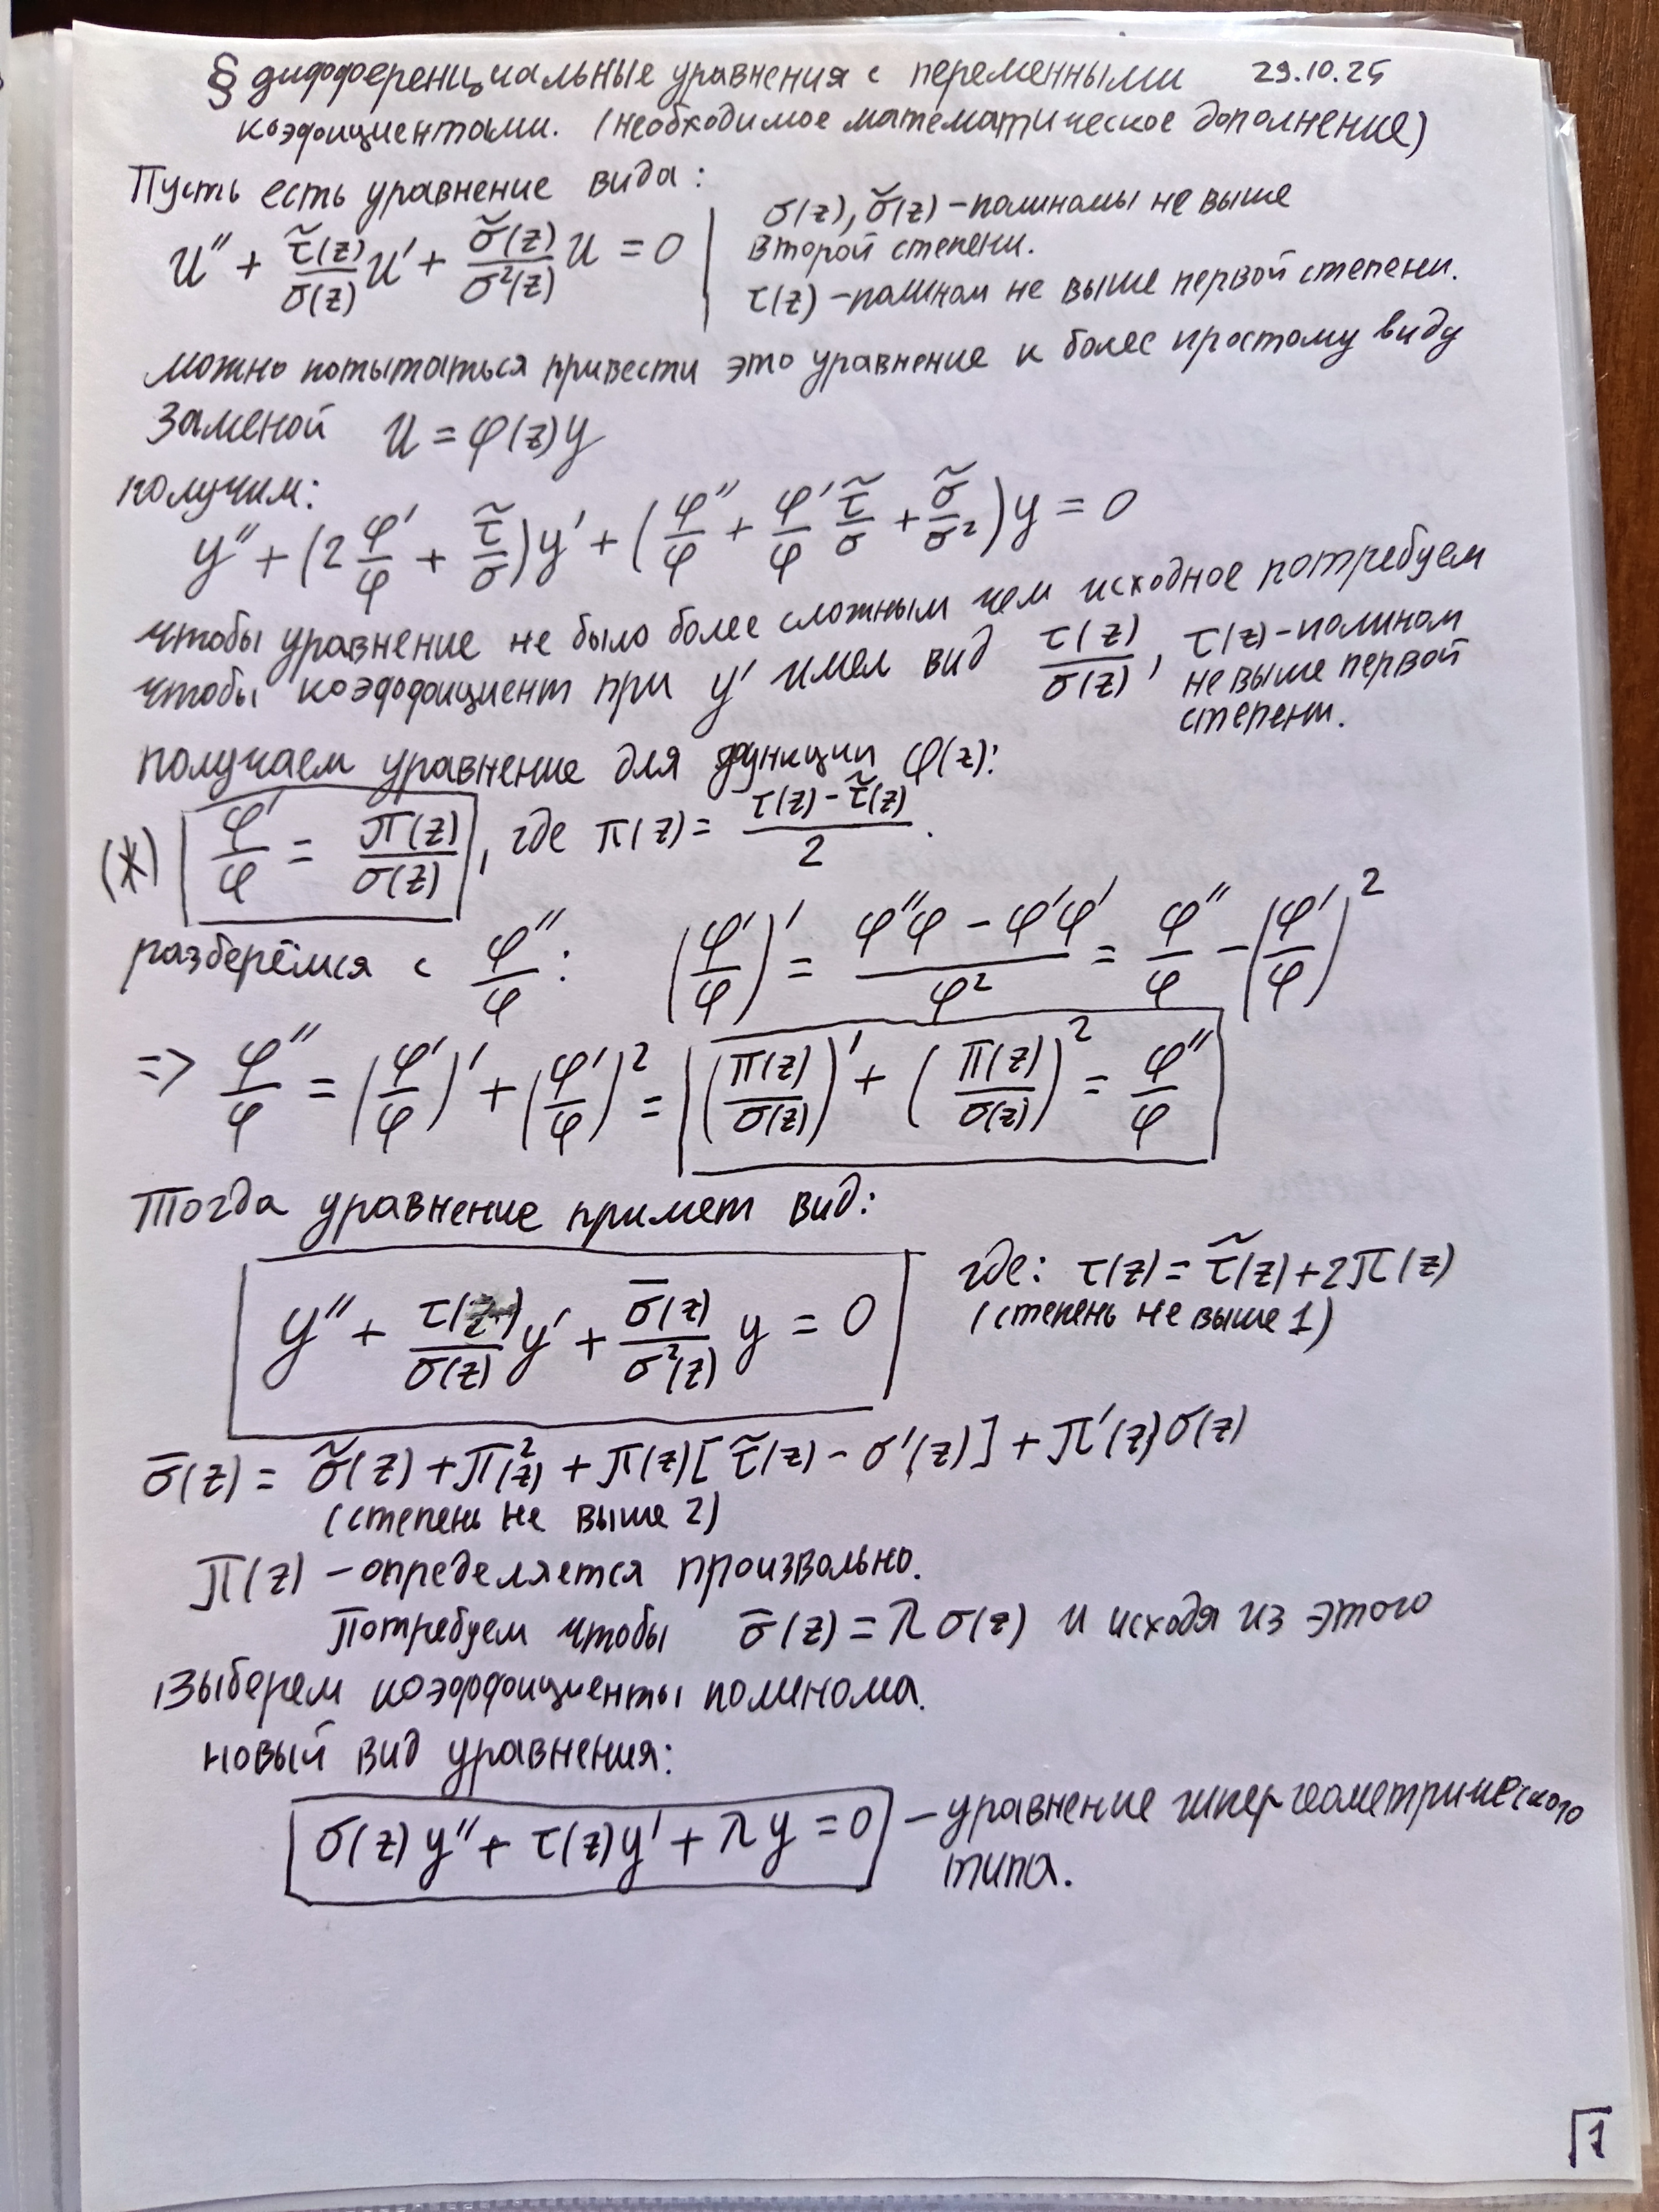 § дифференциальные уравнения с переменными 29.10.25
коэфициентами. (необходимое математическое дополнение)
Пусть есть уравнение вида:
u'' + τ̃(z)/σ(z) u' + σ̃(z)/σ²(z) u = 0 | σ(z), σ̃(z) – полиномы не выше
второй степени.
τ(z) – полином не выше первой степени.
можно попытаться привести это уравнение к более простому виду
заменой u = φ(z)y
получим:
y'' + (2 φ'/φ + τ̃/σ)y' + (φ''/φ + φ'/φ τ̃/σ + σ̃/σ²)y = 0
чтобы уравнение не было более сложным чем исходное потребуем
чтобы коэффициент при y' имел вид τ(z)/σ(z), τ(z) – полином
не выше первой
степени.
получаем уравнение для функции φ(z):
(*) φ'/φ = π(z)/σ(z), где π(z) = (τ(z) – τ̃(z))/2.
разберёмся с φ''/φ: (φ'/φ)' = (φ''φ – φ'φ')/φ² = φ''/φ – (φ'/φ)²
=> φ''/φ = (φ'/φ)' + (φ'/φ)² = (π(z)/σ(z))' + (π(z)/σ(z))² = φ''/φ
Тогда уравнение примет вид:
y'' + τ(z)/σ(z) y' + σ̄(z)/σ²(z) y = 0 где: τ(z) = τ̃(z) + 2π(z)
(степень не выше 1)
σ̄(z) = σ̃(z) + π²(z) + π(z)[τ̃(z) – σ'(z)] + π'(z)σ(z)
(степень не выше 2)
π(z) – определяется произвольно.
Потребуем чтобы σ̄(z) = λσ(z) и исходя из этого
выберем коэффициенты полинома.
новый вид уравнения:
σ(z)y'' + τ(z)y' + λy = 0 – уравнение гипергеометрического
типа.
1